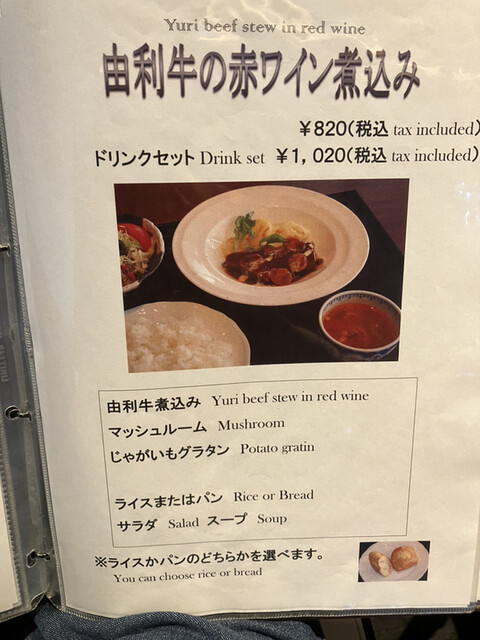 Yuri beef stew in red wine
由利牛の赤ワイン煮込み
￥820（税込 tax included）
ドリンクセット Drink set ￥1，020（税込 tax included）
由利牛煮込み Yuri beef stew in red wine
マッシュルーム Mushroom
じゃがいもグラタン Potato gratin
ライスまたはパン Rice or Bread
サラダ Salad スープ Soup
※ライスかパンのどちらかを選べます。
You can choose rice or bread